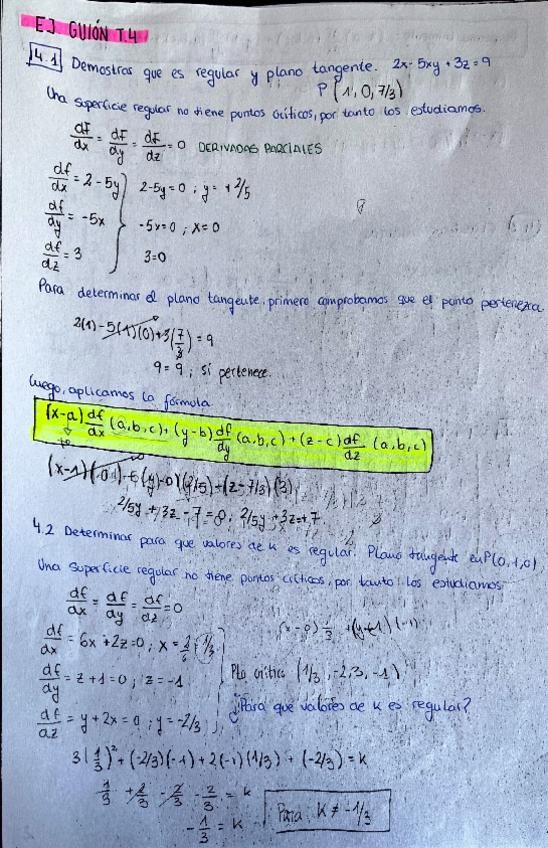 EJ GUIÓN T.4
4.1 Demostras que es regular y plano tangente. 2x-5xy+3z=9
P (1, 0, 7/3)
Una superficie regular no tiene puntos críticos, por tanto los estudiamos.
df/dx = df/dy = df/dz = 0 DERIVADAS PARCIALES
df/dx = 2-5y } 2-5y=0 ; y = +2/5
df/dy = -5x } -5x=0 ; x=0
df/dz = 3 } 3=0
Para determinar el plano tangente, primero comprobamos que el punto pertenezca.
2(1)-5(1)(0)+3(7/3)=9
9=9; sí pertenece.
Luego, aplicamos la fórmula
(x-a) df/dx (a,b,c)+(y-b) df/dy (a,b,c)+(z-c) df/dz (a,b,c)
(y-0)(2/5)+(z-7/3)(3)
2/5y+3z-7=0; 2/5y+3z=+7
4.2 Determinar para que valores de k es regular. Plano tangente en P(0,1,0)
Una superficie regular no tiene puntos críticos, por tanto los estudiamos
df/dx = df/dy = df/dz = 0
df/dx = 6x+2z=0; x= 2/6; 1/3
df/dy = z+1=0; z=-1
Pto crítico (1/3, -2/3, -1)
df/dz = y+2x=0; y=-2/3
¿Para que valores de k es regular?
3(1/3)²+(-2/3)(-1)+2(-1)(1/3)+(-2/3)=k
1/3 +2/3 -2/3 -2/3 = k
-1/3 = k Para k ≠ -1/3